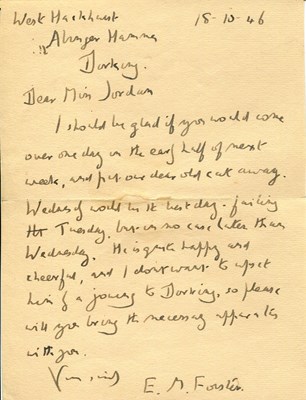 West Hackhurst 18-10-46
Abinger Hammer
Dorking.
Dear Miss Jordan
I should be glad if you would come
over one day in the early half of next
week, and put our dear old cat away.
Wednesday would be the best day - failing
that Tuesday, but in no case later than
Wednesday. He is quite happy and
cheerful, and I don't want to upset
him by a journey to Dorking, so please
will you bring the necessary apparatus
with you.
E. M. Forster.